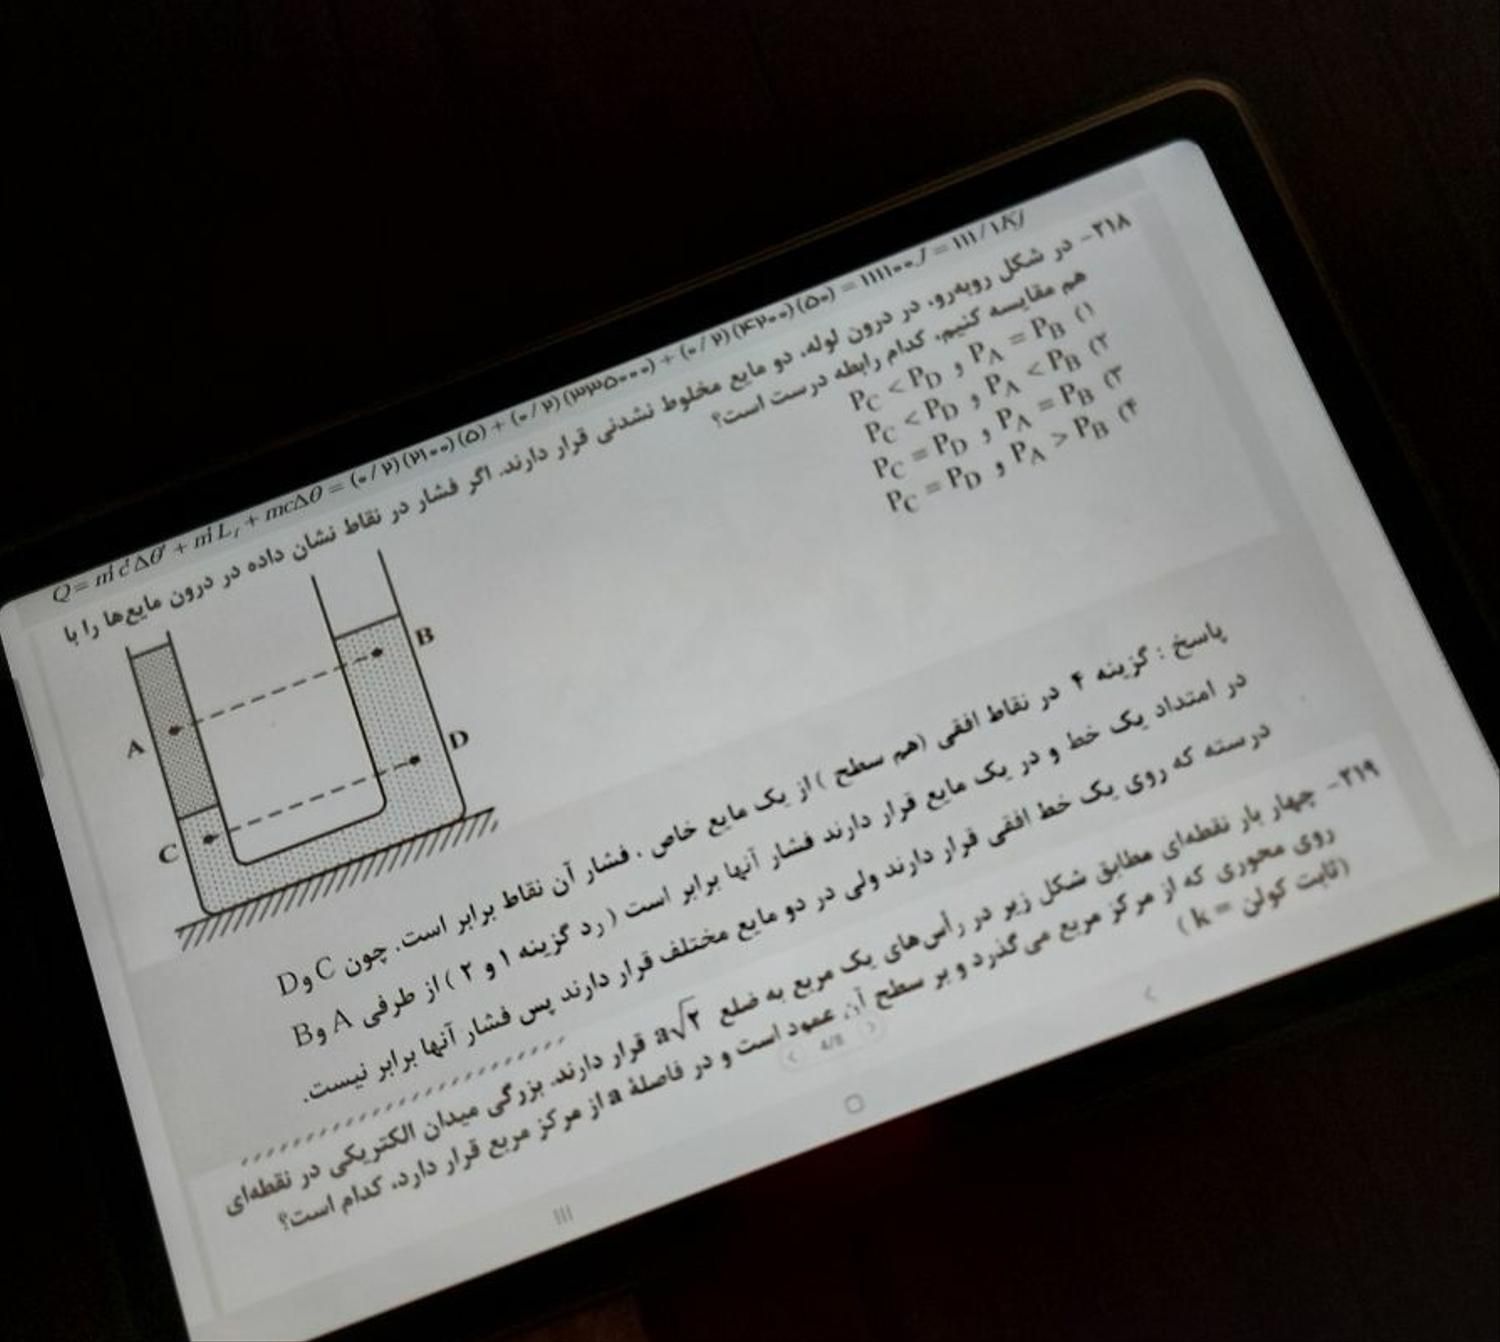 Q = m′c′Δθ′ + m′L_f + mcΔθ = (۰/۲)(۲۱۰۰)(۵) + (۰/۲)(۳۳۵۰۰۰) + (۰/۲)(۴۲۰۰)(۵۰) = ۱۱۱۱۰۰J = ۱۱۱/۱KJ
۲۱۸- در شکل روبه‌رو، در درون لوله، دو مایع مخلوط نشدنی قرار دارند. اگر فشار در نقاط نشان داده در درون مایع‌ها را با
هم مقایسه کنیم، کدام رابطه درست است؟
۱) P_A = P_B و P_C < P_D
۲) P_A < P_B و P_C < P_D
۳) P_A = P_B و P_C = P_D
۴) P_A > P_B و P_C = P_D
A
B
C
D
پاسخ : گزینه ۴ در نقاط افقی (هم سطح ) از یک مایع خاص ، فشار آن نقاط برابر است. چون C و D
در امتداد یک خط و در یک مایع قرار دارند فشار آنها برابر است ( رد گزینه ۱ و ۲ ) از طرفی A و B
درسته که روی یک خط افقی قرار دارند ولی در دو مایع مختلف قرار دارند پس فشار آنها برابر نیست.
۲۱۹- چهار بار نقطه‌ای مطابق شکل زیر در رأس‌های یک مربع به ضلع a√۲ قرار دارند. بزرگی میدان الکتریکی در نقطه‌ای
روی محوری که از مرکز مربع می‌گذرد و بر سطح آن عمود است و در فاصلهٔ a از مرکز مربع قرار دارد، کدام است؟
(ثابت کولن = k)
4/8